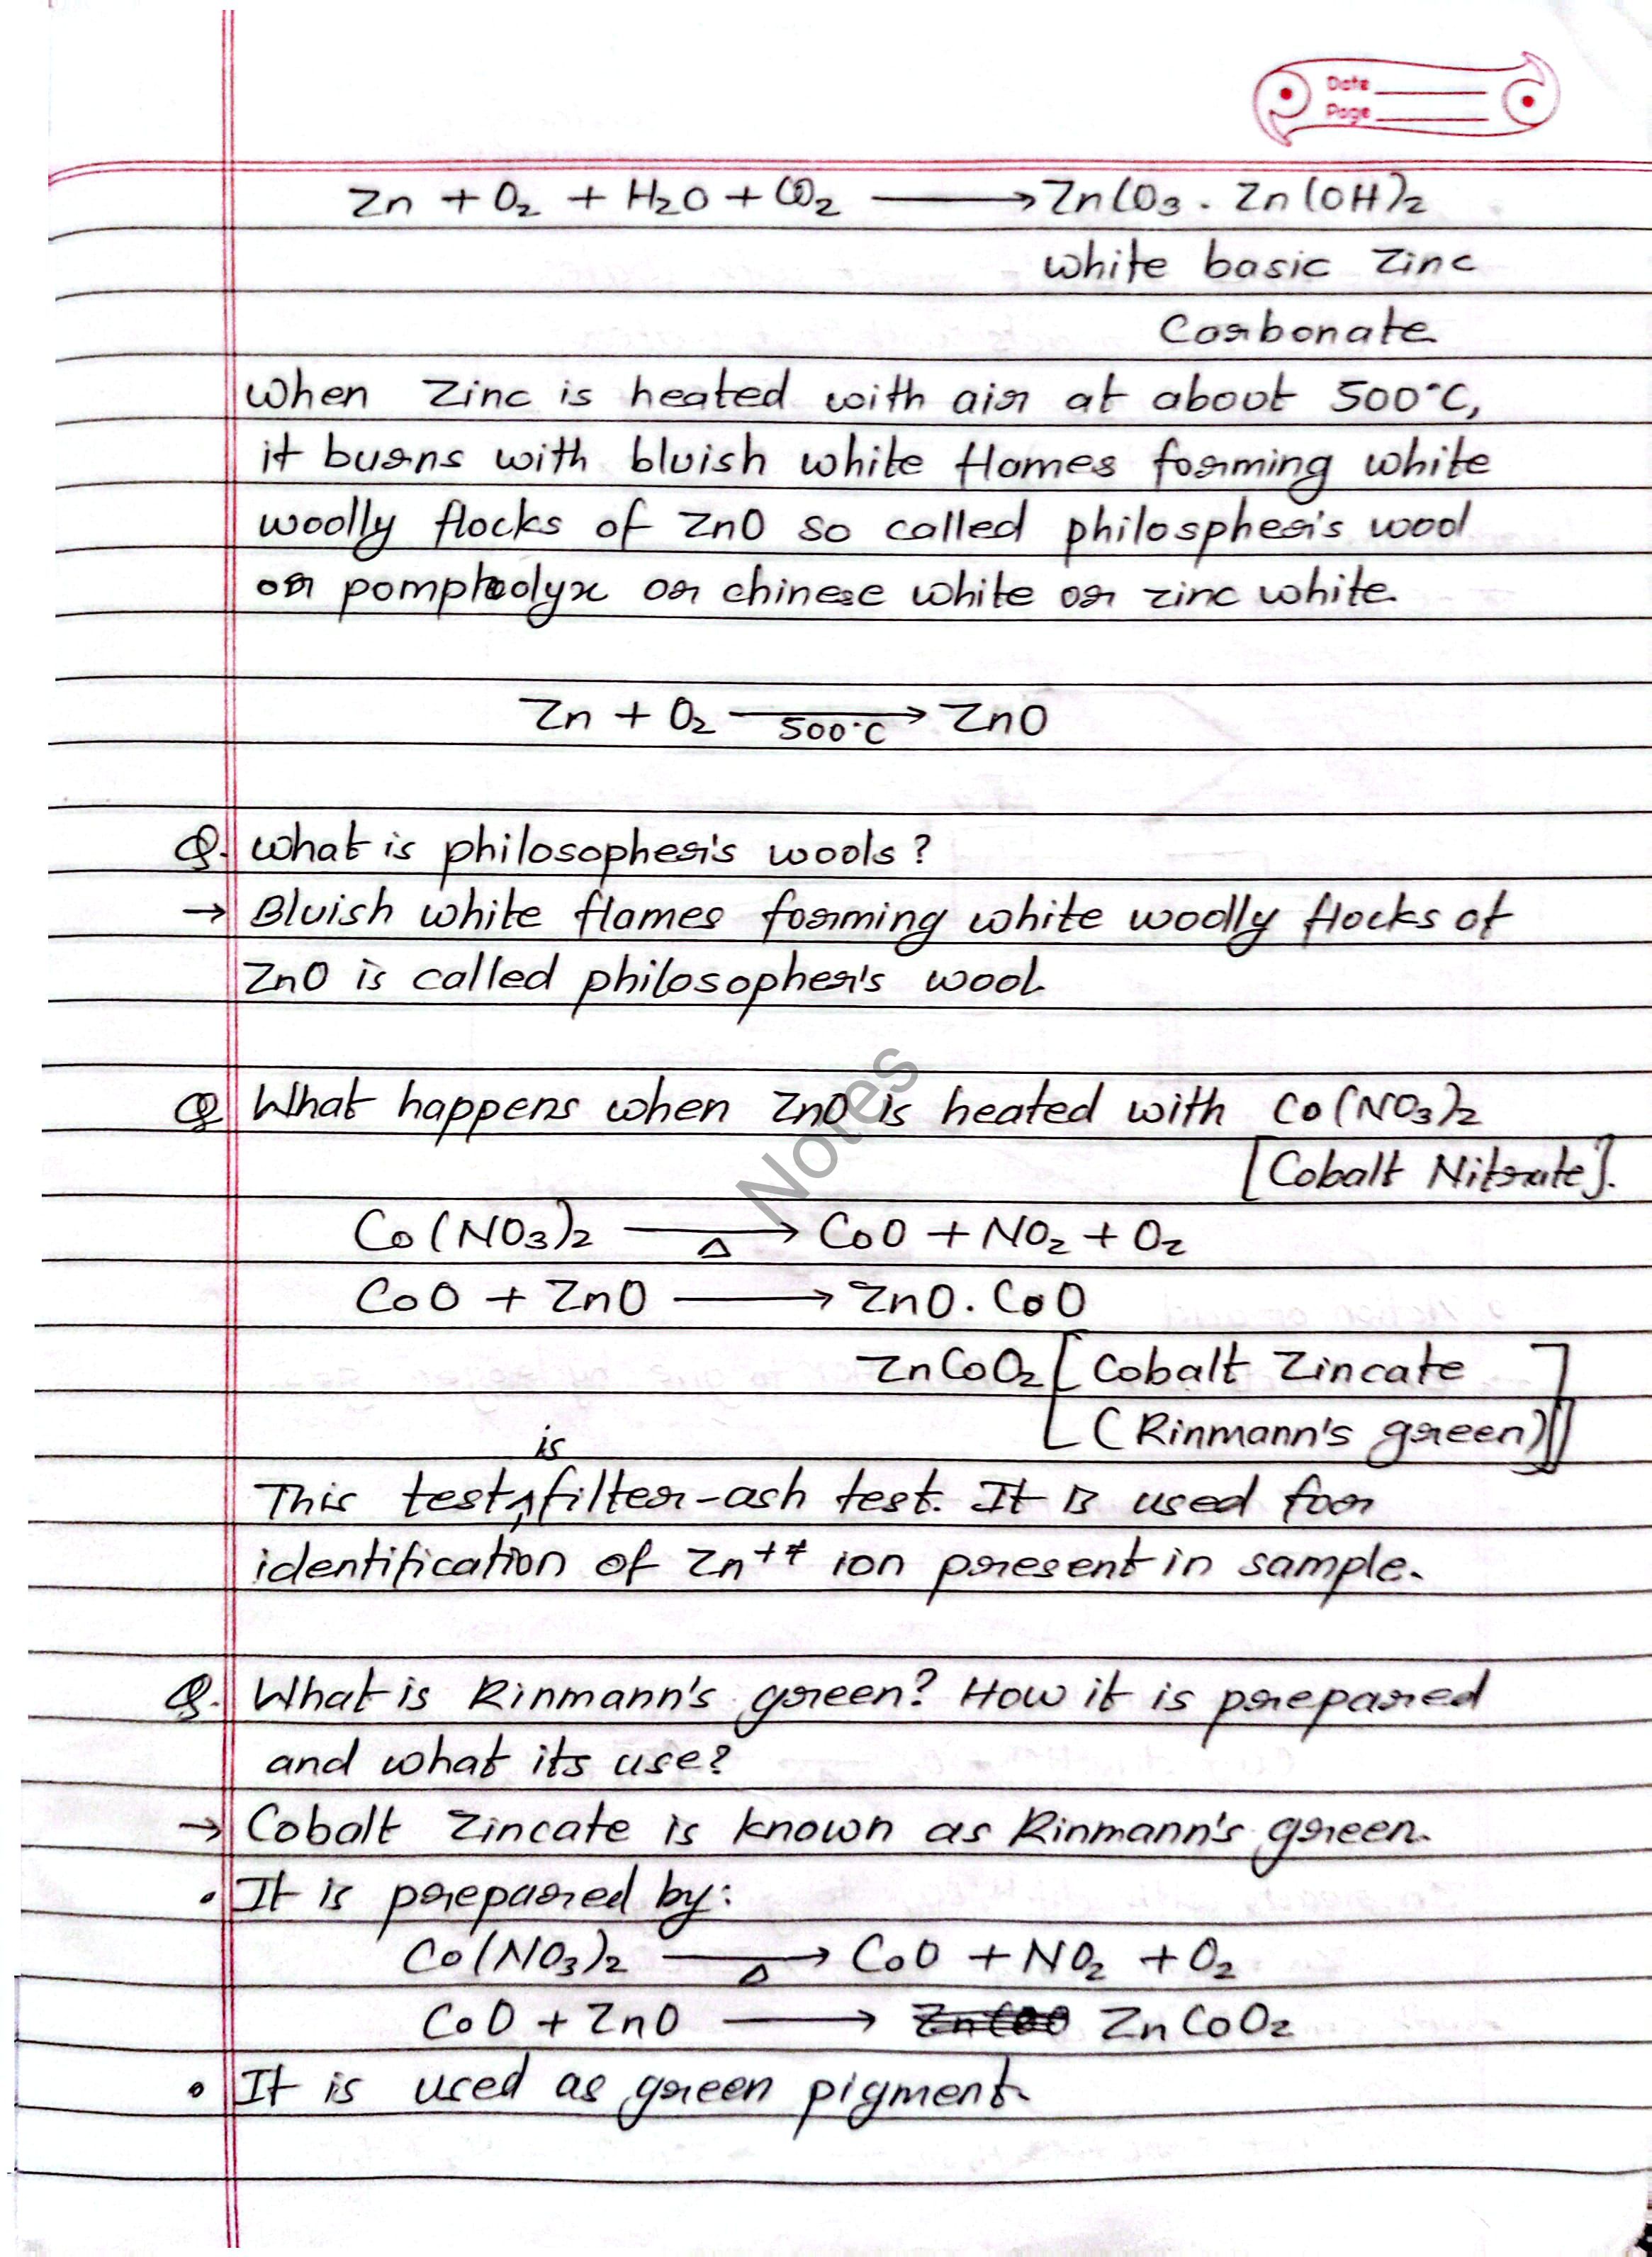 Date
Page
Zn + O2 + H2O + CO2 ⟶ ZnCO3 . Zn(OH)2
white basic zinc
Carbonate.
When zinc is heated with air at about 500°C,
it burns with bluish white flames forming white
woolly flocks of ZnO so called philospher's wool
or pompholyx or chinese white or zinc white.
Zn + O2 ⟶ ZnO
500°C
Q. What is philosopher's wools?
→ Bluish white flames forming white woolly flocks of
ZnO is called philosopher's wool.
Q What happens when ZnO is heated with Co(NO3)2
[Cobalt Nitrate].
Co(NO3)2 ⟶ CoO + NO2 + O2
Δ
CoO + ZnO ⟶ ZnO . CoO
ZnCoO2 [Cobalt Zincate
(Rinmann's green)]
This test is filter-ash test. It is used for
identification of Zn++ ion present in sample.
Q. What is Rinmann's green? How it is prepared
and what its use?
→ Cobalt Zincate is known as Rinmann's green.
• It is prepared by:
Co(NO3)2 ⟶ CoO + NO2 + O2
Δ
CoO + ZnO ⟶ ZnCoO2
• It is used as green pigment.
Notes